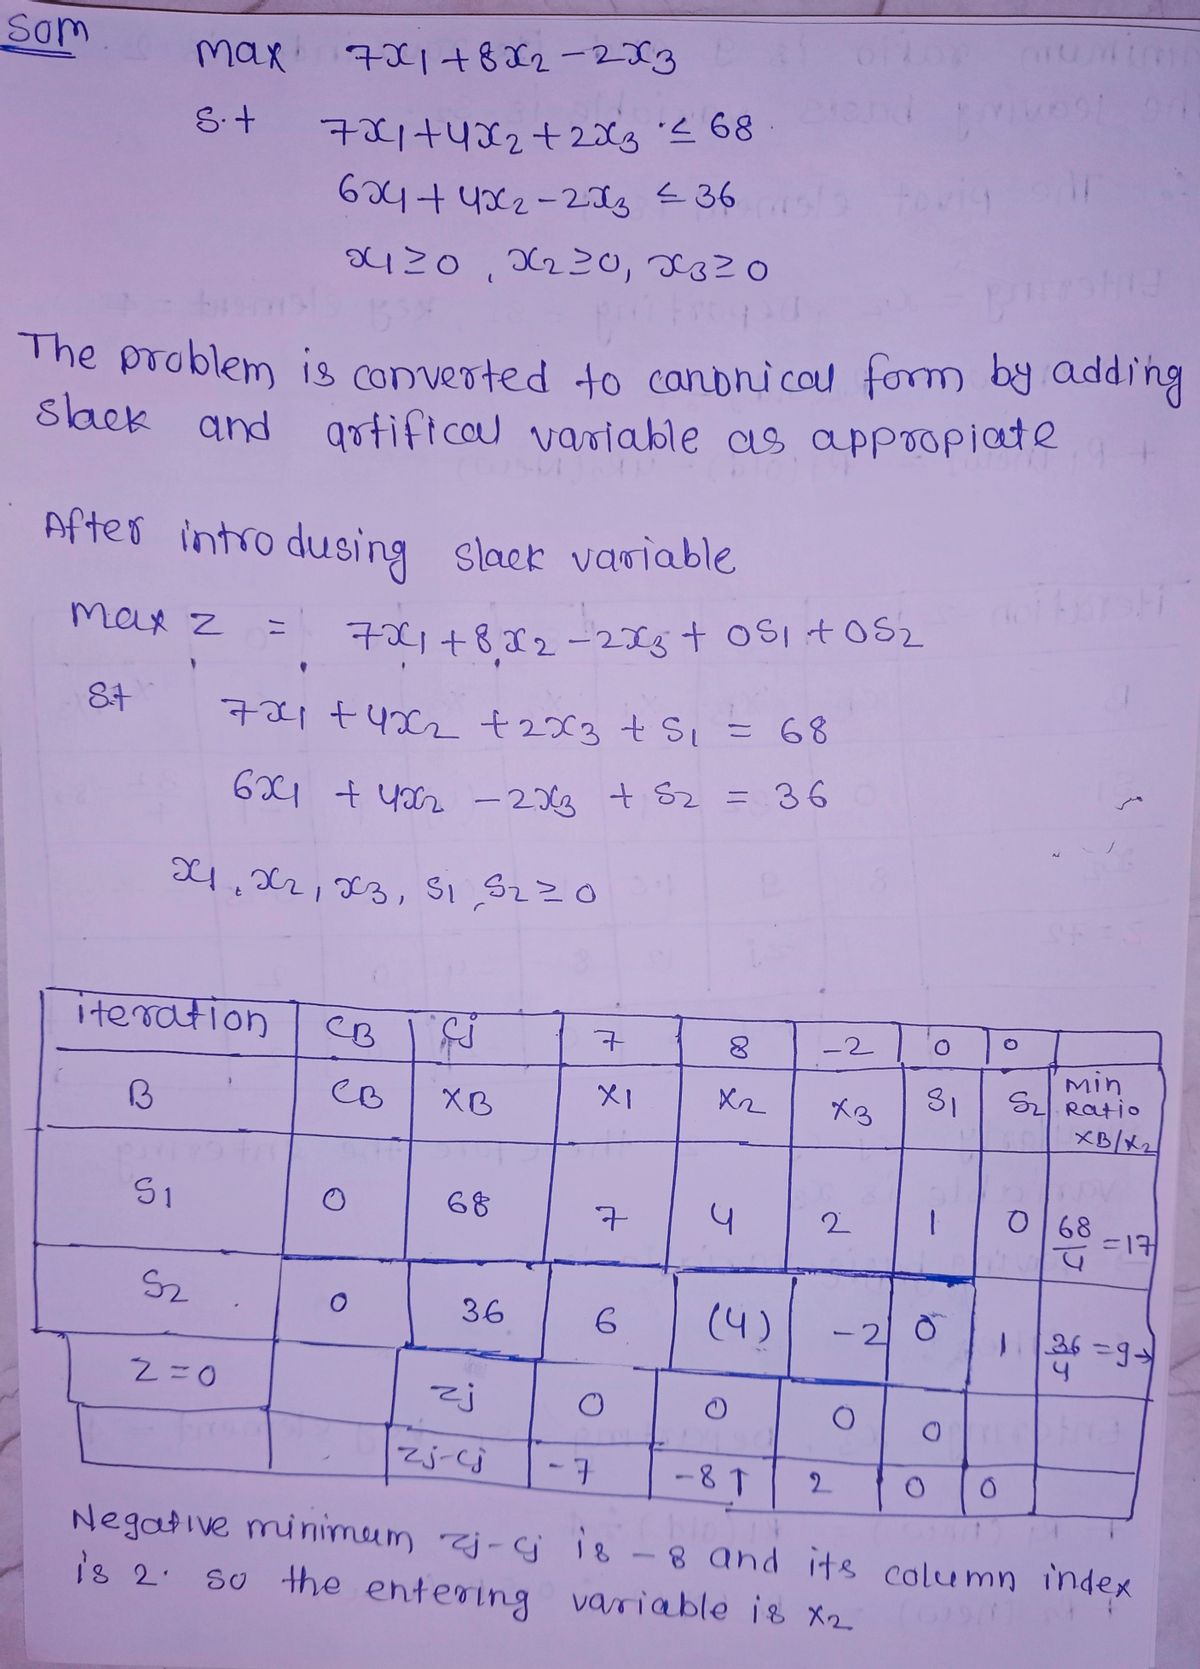 Som
max 7x1 + 8x2 - 2x3
s.t 7x1 + 4x2 + 2x3 ≤ 68
6x1 + 4x2 - 2x3 ≤ 36
x1 ≥ 0, x2 ≥ 0, x3 ≥ 0
The problem is converted to canonical form by adding
slack and artifical variable as appropiate
After introdusing slack variable
max z = 7x1 + 8x2 - 2x3 + 0S1 + 0S2
s.t 7x1 + 4x2 + 2x3 + S1 = 68
6x1 + 4x2 - 2x3 + S2 = 36
x1, x2, x3, S1, S2 ≥ 0
iteration CB Cj 7 8 -2 0 0
B CB XB X1 X2 X3 S1 S2 Min Ratio XB/X2
S1 0 68 7 4 2 1 0 68/4 = 17
S2 0 36 6 (4) -2 0 1 36/4 = 9→
Z=0 Zj 0 0 0 0
Zj-Cj -7 -8↑ 2 0 0
Negative minimum Zj-Cj is -8 and its column index
is 2. so the entering variable is x2